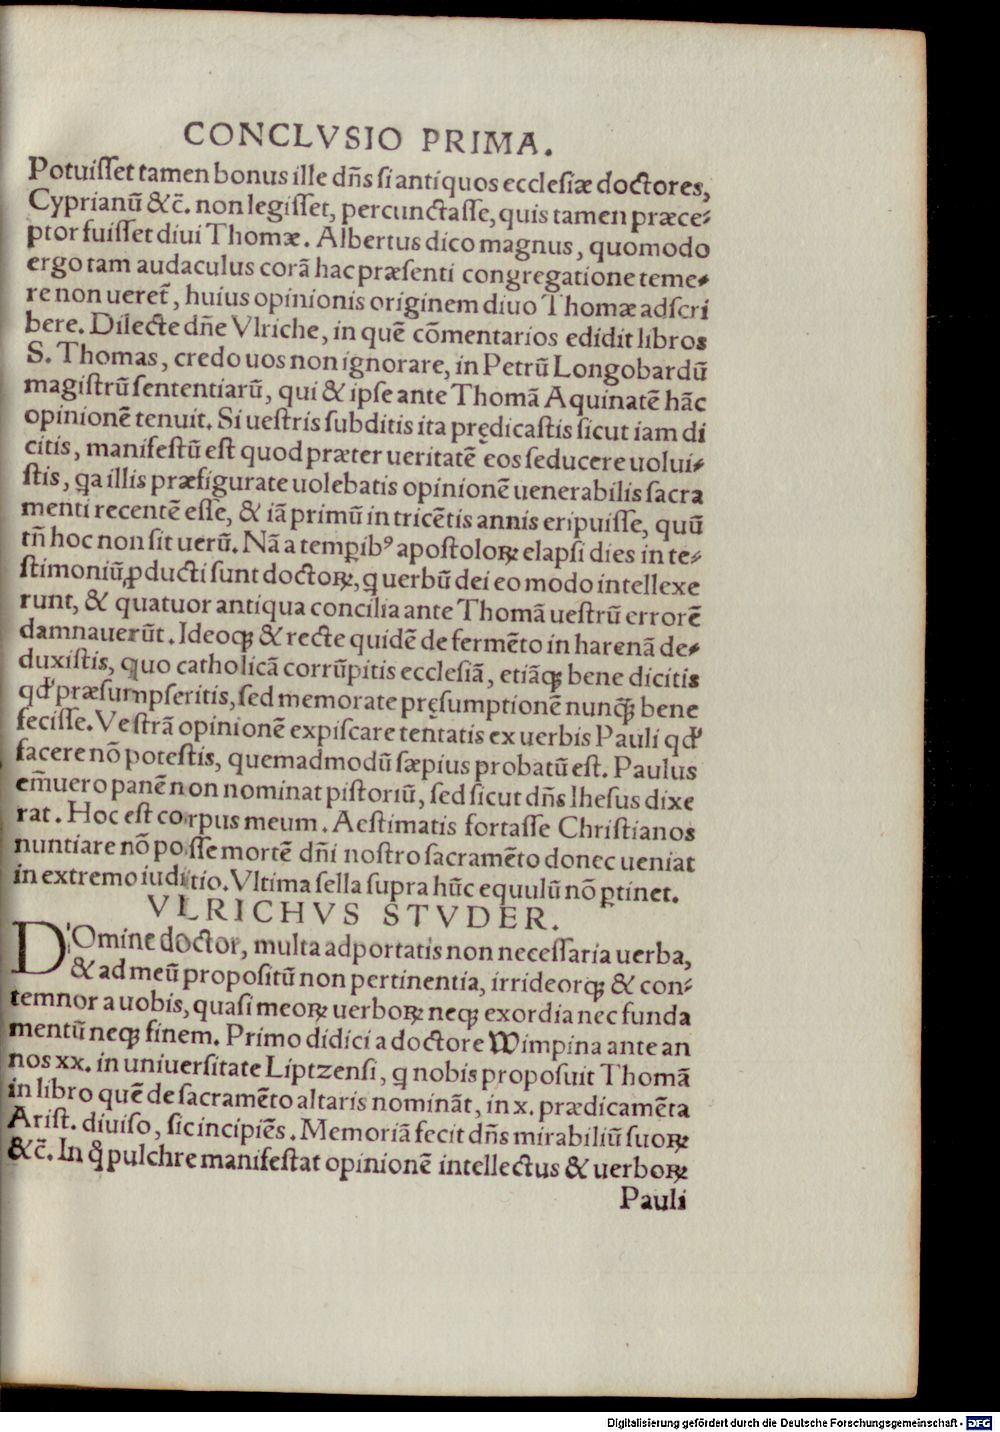 CONCLVSIO PRIMA.
Potuisset tamen bonus ille dn̄s si antiquos ecclesiæ doctores,
Cyprianū &c̄. non legisset, percunctasse, quis tamen præce⸗
ptor fuisset diui Thomæ. Albertus dico magnus, quomodo
ergo tam audaculus corā hac præsenti congregatione teme⸗
re non ueret̄, huius opinionis originem diuo Thomæ adscri
bere. Dilecte dn̄e Vlriche, in quē cōmentarios edidit libros
S. Thomas, credo uos non ignorare, in Petrū Longobardū
magistrū sententiarū, qui & ipse ante Thomā Aquinatē hāc
opinionē tenuit. Si uestris subditis ita prędicastis sicut iam di
citis, manifestū est quod præter ueritatē eos seducere uolui⸗
stis, qa illis præfigurate uolebatis opinionē uenerabilis sacra
menti recentē esse, & iā primū in tricētis annis eripuisse, quū
tn̄ hoc non sit uerū. Nā a temꝑibꝰ apostoloꝝ elapsi dies in te⸗
stimoniū ꝓducti sunt doctoꝝ, q uerbū dei eo modo intellexe
runt, & quatuor antiqua concilia ante Thomā uestrū errorē
damnauerūt. Ideoqꝫ & recte quidē de fermēto in harenā de⸗
duxistis, quo catholicā corrūpitis ecclesiā, etiāqꝫ bene dicitis
qd' præsumpseritis, sed memorate pręsumptionē nunq̄ꝫ bene
fecisse. Vestrā opinionē expiscare tentatis ex uerbis Pauli qd'
facere nō potestis, quemadmodū sæpius probatū est. Paulus
em̄uero panē non nominat pistoriū, sed sicut dn̄s Ihesus dixe
rat. Hoc est corpus meum. Aestimatis fortasse Christianos
nuntiare nō posse mortē dn̄i nostro sacramēto donec ueniat
in extremo iuditio. Vltima sella supra hūc equulū nō ꝑtinet.
VLRICHVS STVDER.
DOmine doctor, multa adportatis non necessaria uerba,
& ad meū propositū non pertinentia, irrideorqꝫ & con⸗
temnor a uobis, quasi meoꝝ uerboꝝ neqꝫ exordia nec funda
mentū neqꝫ finem. Primo didici a doctore Wimpina ante an
nos xx. in uniuersitate Liptzensi, q nobis proposuit Thomā
in libro quē de sacramēto altaris nomināt, in x. prædicamēta
Arist. diuiso, sic incipiēs. Memoriā fecit dn̄s mirabiliū suoꝝ
&c̄. In q̊ pulchre manifestat opinionē intellectus & uerboꝝ
Pauli
Digitalisierung gefördert durch die Deutsche Forschungsgemeinschaft - DFG